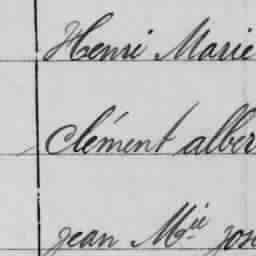 Henri Marie
Clément alber
Jean Mie jose